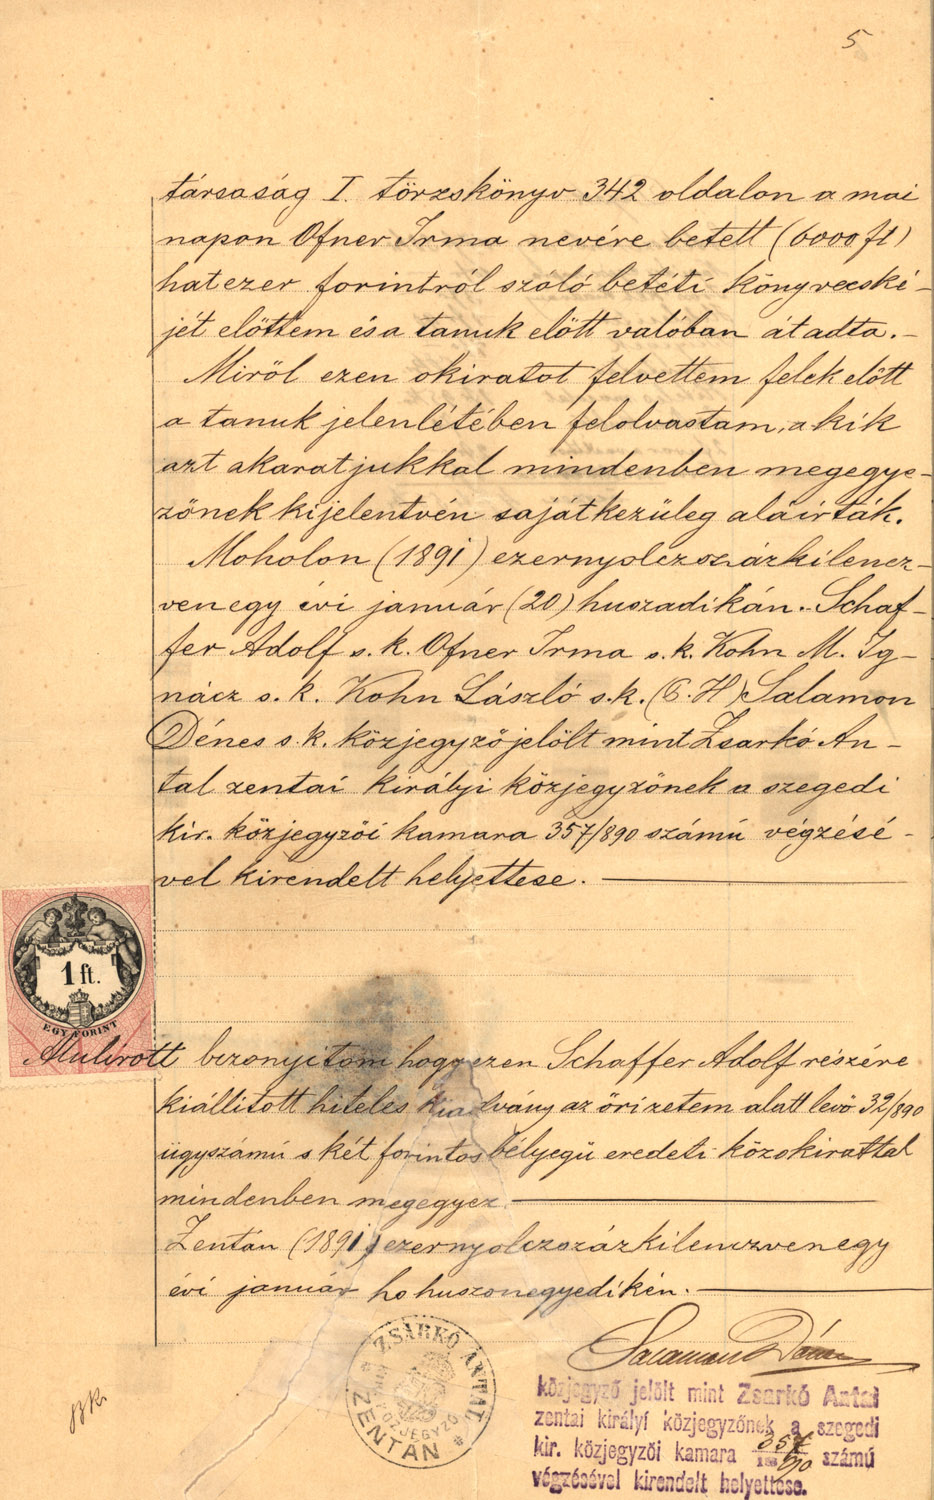 5
társaság I. törzskönyv 342 oldalon a mai
napon Ofner Irma nevére betett (6000 ft)
hatezer forintról szóló betéti könyvecské-
jét előttem és a tanuk előtt valóban átadta.-
Miről ezen okiratot felvettem felek előtt
a tanuk jelenlétében felolvastam, a kik
azt akaratjukkal mindenben megegye-
zőnek kijelentvén sajátkezüleg aláirták.
Moholon (1891) ezernyolczszázkilencz-
venegy évi január (20) huszadikán.- Schaf-
fer Adolf s. k. Ofner Irma s. k. Kohn M. Ig-
nácz s. k. Kohn László s. k. (P. H) Salamon
Dénes s. k. közjegyző jelölt mint Zsarkó An-
tal zentai királyi közjegyzőnek a szegedi
kir. közjegyzői kamara 357/890 számú végzésé-
vel kirendelt helyettese.
1 ft.
EGY FORINT
Alulirott bizonyitom hogy ezen Schaffer Adolf részére
kiállitott hiteles kiadvány az őrizetem alatt levő 32/890
ügyszámú s két forintos bélyegü eredeti közokirattal
mindenben megegyez.
Zentán (1891) ezernyolczszázkilenczvenegy
évi január hó huszonegyedikén.-
Salamon Dénes
ZSARKÓ ANTAL
KIR. KÖZJEGYZŐ
ZENTÁN
közjegyző jelölt mint Zsarkó Antal
zentai királyi közjegyzőnek a szegedi
kir. közjegyzői kamara 357/1890 számú
végzésével kirendelt helyettese.